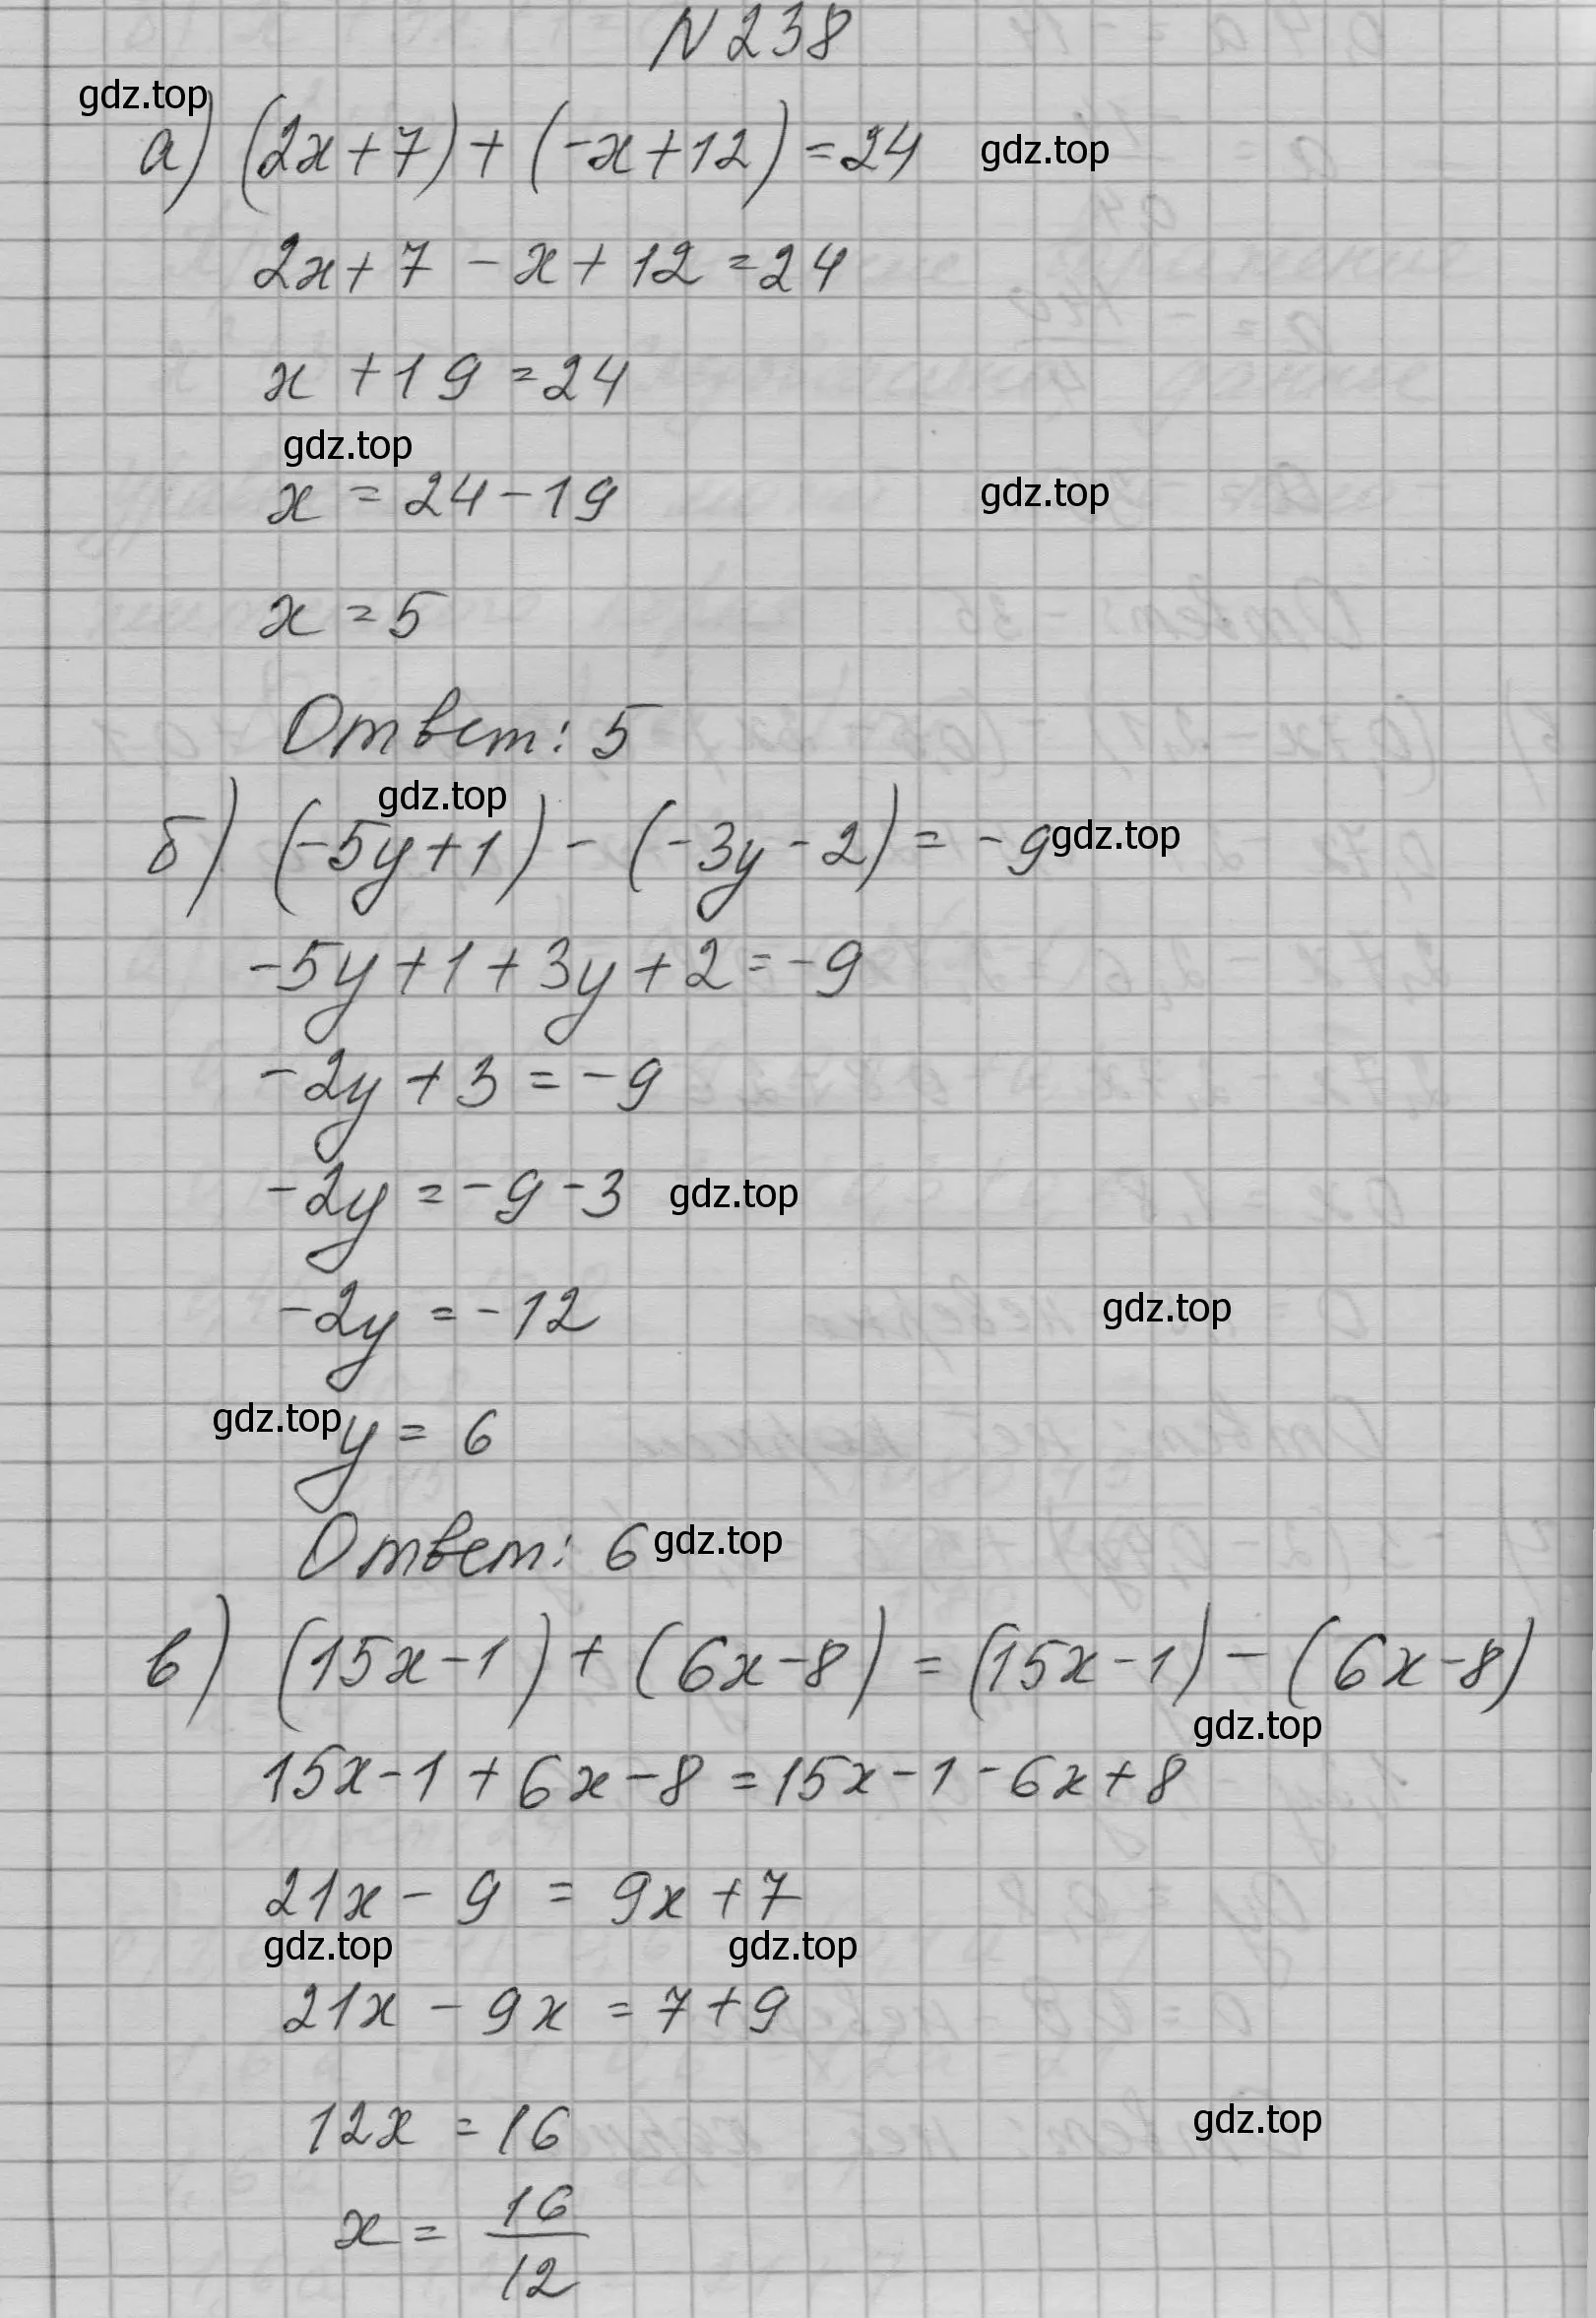 N 238
gdz.top
а) (2x+7)+(-x+12)=24 gdz.top
2x+7-x+12=24
x+19=24
gdz.top
x=24-19 gdz.top
x=5
Ответ: 5
gdz.top
б) (-5y+1)-(-3y-2)=-9 gdz.top
-5y+1+3y+2=-9
-2y+3=-9
-2y=-9-3 gdz.top
-2y=-12 gdz.top
gdz.top y=6
Ответ: 6 gdz.top
в) (15x-1)+(6x-8)=(15x-1)-(6x-8)
gdz.top
15x-1+6x-8=15x-1-6x+8
21x-9=9x+7
gdz.top gdz.top
21x-9x=7+9
12x=16 gdz.top
x=16/12